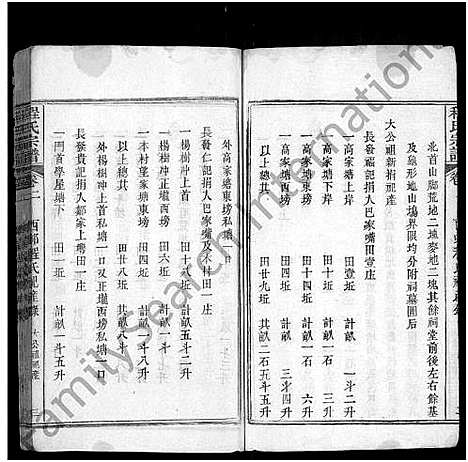 程氏宗譜
北首山腳荒地二塊麥地二塊其餘祠堂前後左右餘基
及龜形地山塲界限均分附祠墓圖后
大公祖新捐祀產
長發福記捐人巴家嘴田壹庄
一高家塘上岸 田壹坵 計畝一斗五升
一高家塘下岸 田四坵 計畝一石
一高家塘東塝 田十五坵 計畝三斗四升
一高家塘西塝 田九坵 計畝一石六升
以上總共 田廿九坵 計畝三石五升
外高家塘東塝私塘一口
長發仁記捐人楊家及木村田一庄
一楊樹冲正壠上首 田十八坵 計畝五斗二升
一楊樹冲正壠西塝 田六坵 計畝一斗八升
一本村望家塘東塝 田四坵 計畝一斗八升
以上總共 田廿八坵 計畝八斗八升
外楊樹冲正壠上首私塘一口又正壠西塝私塘一口
長發貴記捐人鄒家上塆田一庄
一門首學屋塘下 田一坵 計畝一斗五升
程氏宗譜 卷二 西鄉程氏祀產錄 大公祖祀產
FamilySearch International